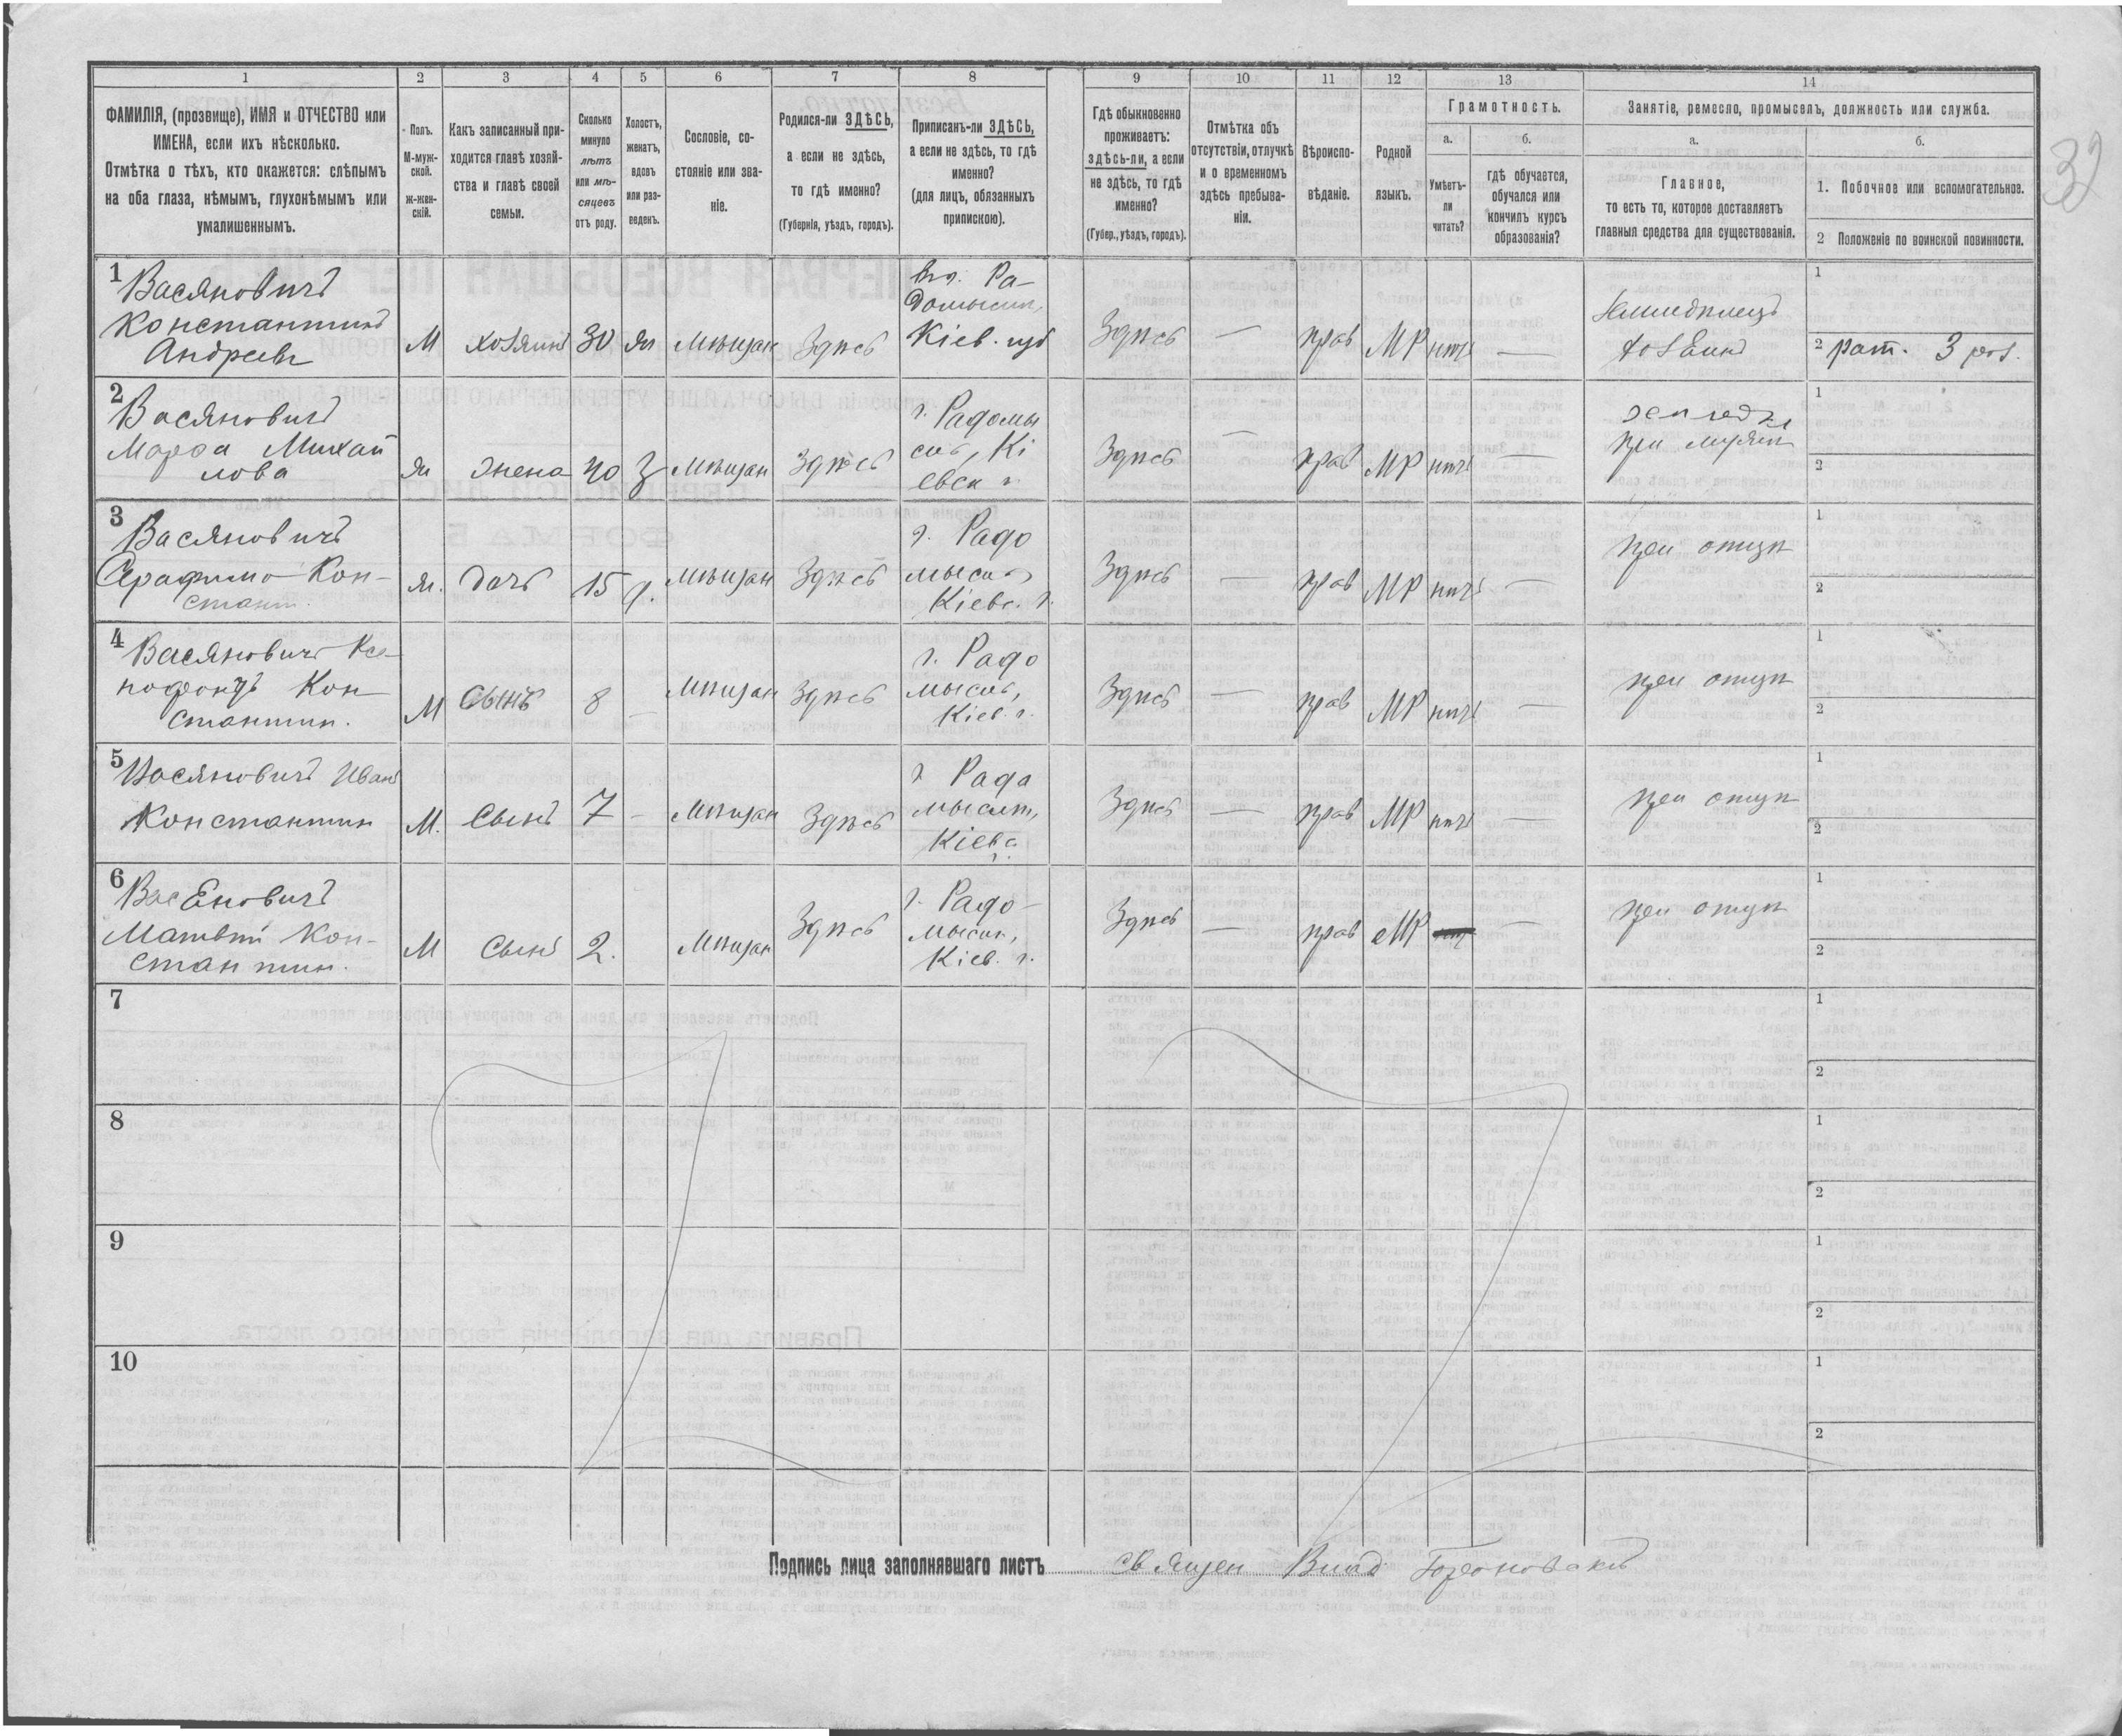 1 2 3 4 5 6 7 8 9 10 11 12 13 14
ФАМИЛІЯ, (прозвище), ИМЯ и ОТЧЕСТВО или
ИМЕНА, если ихъ нѣсколько.
Отмѣтка о тѣхъ, кто окажется: слѣпымъ
на оба глаза, нѣмымъ, глухонѣмымъ или
умалишеннымъ.
Полъ.
М-муж-
ской.
ж-жен-
скій.
Какъ записанный при-
ходится главѣ хозяй-
ства и главѣ своей
семьи.
Сколько
минуло
лѣтъ
или мѣ-
сяцевъ
отъ роду.
Холостъ,
женатъ,
вдовъ
или раз-
веденъ.
Сословіе, со-
стояніе или зва-
ніе.
Родился-ли ЗДѢСЬ,
а если не здѣсь,
то гдѣ именно?
(Губернія, уѣздъ, городъ).
Приписанъ-ли ЗДѢСЬ,
а если не здѣсь, то гдѣ
именно?
(для лицъ, обязанныхъ
припискою).
Гдѣ обыкновенно
проживаетъ:
здѣсь-ли, а если
не здѣсь, то гдѣ
именно?
(Губер., уѣздъ, городъ).
Отмѣтка объ
отсутствіи, отлучкѣ
и о временномъ
здѣсь пребыва-
ніи.
Вѣроиспо-
вѣданіе.
Родной
языкъ.
Грамотность.
а.
Умѣетъ-
ли
читать?
б.
гдѣ обучается,
обучался или
кончилъ курсъ
образованія?
Занятіе, ремесло, промыселъ, должность или служба.
а.
Главное,
то есть то, которое доставляетъ
главныя средства для существованія.
б.
1. Побочное или вспомогательное.
2 Положеніе по воинской повинности.
32
1
Васяновичъ
Константинъ
Андреевъ
М
хозяинъ
30
Мѣщан
Здѣсь
Ра-
домысл,
Кіев. губ
Здѣсь
—
прав
МР
нѣтъ
—
хозяинъ
1
2 рат. 3 раз.
2
Васяновичъ
Марфа Михай
лова
жена
40
Мѣщан
Здѣсь
г. Радомы
сль, Кі
евск г
Здѣсь
—
прав
МР
нѣтъ
—
при мужѣ
1
2
3
Васяновичъ
Серафима Кон-
стант.
дочь
15
Мѣщан
Здѣсь
г. Радо
мысль
Кіевс. г.
Здѣсь
—
прав
МР
нѣтъ
—
при отцѣ
1
2
4
Васяновичъ Ксе-
нофонтъ Кон
стантин.
М
сынъ
8
—
Мѣщан
Здѣсь
г. Радо
мысль,
Кіев. г.
Здѣсь
—
прав
МР
нѣтъ
—
при отцѣ
1
2
5
Васяновичъ Иванъ
Константин
М.
Сынъ
7
-
Мѣщан
Здѣсь
г Рада
мысль,
Кіевс
г.
Здѣсь
—
прав
МР
нѣтъ
—
при отцѣ
1
2
6
Васяновичъ
Матвѣй Кон-
стантин.
М
сынъ
2.
Мѣщан
Здѣсь
г. Радо-
мысль,
Кіев. г.
Здѣсь
—
прав
МР
—
при отцѣ
1
2
7
1
2
8
1
2
9
1
2
10
1
2
Подпись лица заполнявшаго листъ Священ